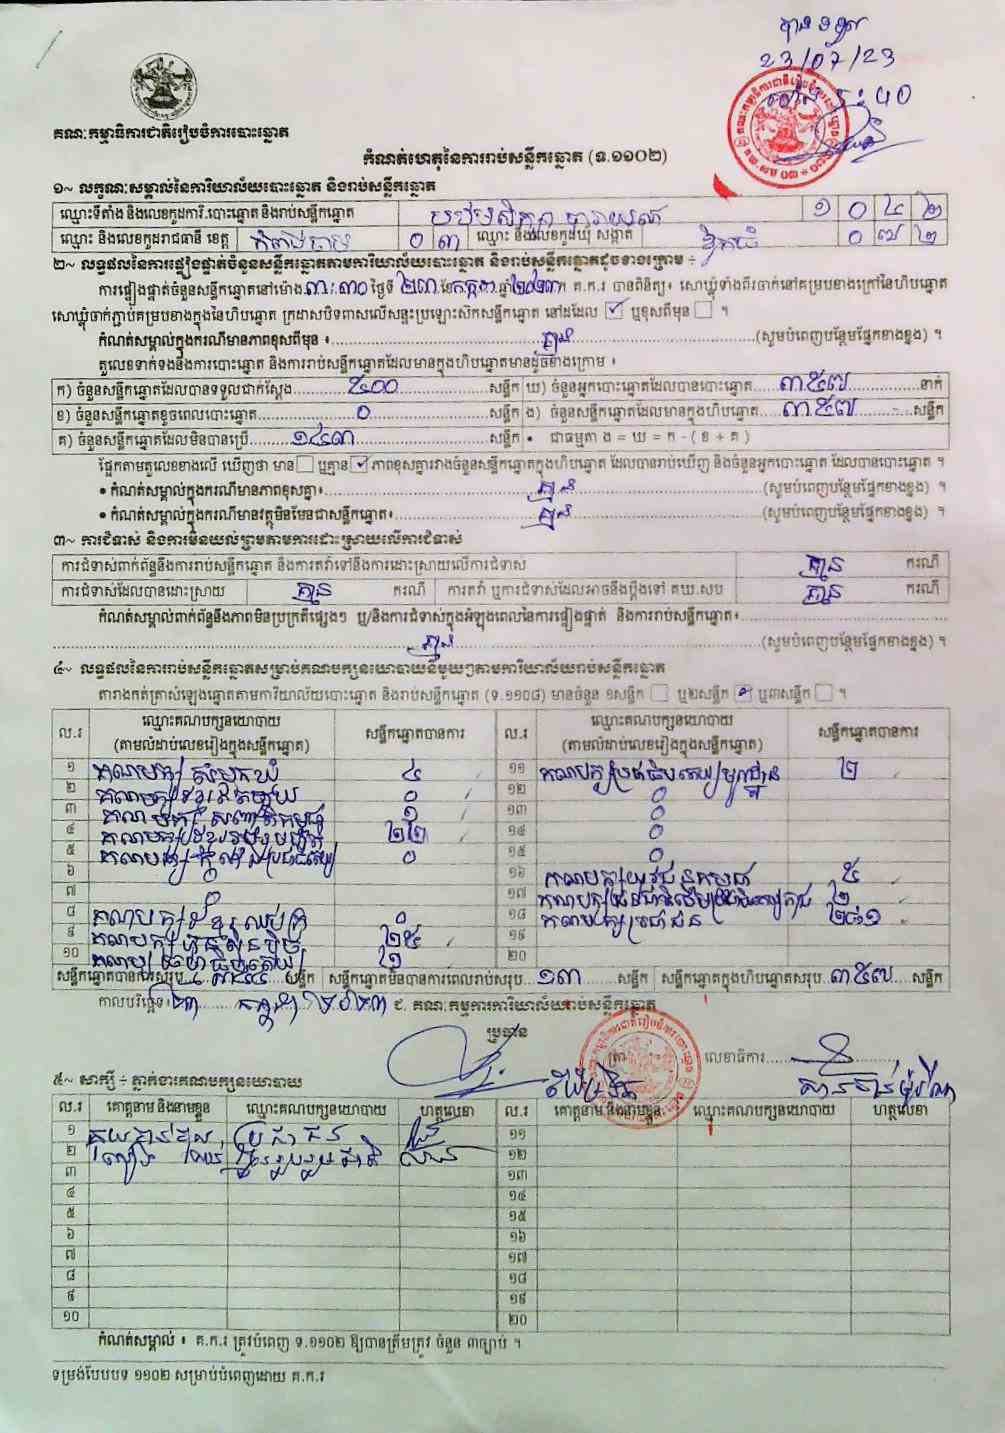 បានទទួល
23/07/23
ម៉ោង 5:40
គណៈកម្មាធិការជាតិរៀបចំការបោះឆ្នោត
កំណត់ហេតុនៃការរាប់សន្លឹកឆ្នោត (ទ.១១០២)
១~ លក្ខណៈសម្គាល់នៃការិយាល័យបោះឆ្នោត និងរាប់សន្លឹកឆ្នោត
ឈ្មោះទីតាំង និងលេខកូដការិ.បោះឆ្នោត និងរាប់សន្លឹកឆ្នោត បឋមសិក្សា ១ ០ ៤ ២
ឈ្មោះ និងលេខកូដរាជធានី ខេត្ត កំពង់ចាម ០ ៣ ឈ្មោះ និងលេខកូដឃុំ សង្កាត់ ០ ៧ ២
២~ លទ្ធផលនៃការផ្ទៀងផ្ទាត់ចំនួនសន្លឹកឆ្នោតតាមការិយាល័យបោះឆ្នោត និងរាប់សន្លឹកឆ្នោតដូចខាងក្រោម ÷
ការផ្ទៀងផ្ទាត់ចំនួនសន្លឹកឆ្នោតនៅម៉ោង ៣:៣០ ថ្ងៃទី ២៣ ខែ កក្កដា ឆ្នាំ ២០២៣។ គ.ក.រ បានពិនិត្យ៖ សោឃ្លុំទាំងពីរចាក់នៅគម្របខាងក្រៅនៃហិបឆ្នោត
សោឃ្លុំចាក់ភ្ជាប់គម្របខាងក្នុងនៃហិបឆ្នោត ក្រដាសបិទពាសលើសន្ទះប្រឡោះស៊កសន្លឹកឆ្នោត នៅដដែល ☑ ឬខុសពីមុន ☐ ។
កំណត់សម្គាល់ក្នុងករណីមានភាពខុសពីមុន ៖ គ្មាន (សូមបំពេញបន្ថែមផ្នែកខាងខ្នង) ។
តួលេខទាក់ទងនឹងការបោះឆ្នោត និងការរាប់សន្លឹកឆ្នោតដែលមានក្នុងហិបឆ្នោតមានដូចខាងក្រោម ៖
ក) ចំនួនសន្លឹកឆ្នោតដែលបានទទួលជាក់ស្តែង ៥០០ សន្លឹក ឃ) ចំនួនអ្នកបោះឆ្នោតដែលបានបោះឆ្នោត ៣៥៧ នាក់
ខ) ចំនួនសន្លឹកឆ្នោតខូចពេលបោះឆ្នោត ០ សន្លឹក ង) ចំនួនសន្លឹកឆ្នោតដែលមានក្នុងហិបឆ្នោត ៣៥៧ សន្លឹក
គ) ចំនួនសន្លឹកឆ្នោតដែលមិនបានប្រើ ១៤៣ សន្លឹក • ជាធម្មតា ង = ឃ = ក - ( ខ + គ )
ផ្អែកតាមតួលេខខាងលើ ឃើញថា មាន ☐ ឬគ្មាន ☑ ភាពខុសគ្នារវាងចំនួនសន្លឹកឆ្នោតក្នុងហិបឆ្នោត ដែលបានរាប់ឃើញ និងចំនួនអ្នកបោះឆ្នោត ដែលបានបោះឆ្នោត ។
• កំណត់សម្គាល់ក្នុងករណីមានភាពខុសគ្នា៖ គ្មាន (សូមបំពេញបន្ថែមផ្នែកខាងខ្នង) ។
• កំណត់សម្គាល់ក្នុងករណីមានវត្ថុមិនមែនជាសន្លឹកឆ្នោត៖ គ្មាន (សូមបំពេញបន្ថែមផ្នែកខាងខ្នង) ។
៣~ ការជំទាស់ និងការមិនយល់ព្រមតាមការដោះស្រាយលើការជំទាស់
ការជំទាស់ពាក់ព័ន្ធនឹងការរាប់សន្លឹកឆ្នោត និងការតវ៉ាទៅនឹងការដោះស្រាយលើការជំទាស់ គ្មាន ករណី
ការជំទាស់ដែលបានដោះស្រាយ គ្មាន ករណី ការតវ៉ា ឬការជំទាស់ដែលអាចនឹងប្តឹងទៅ គឃ.សប គ្មាន ករណី
កំណត់សម្គាល់ពាក់ព័ន្ធនឹងភាពមិនប្រក្រតីផ្សេងៗ ឬ/និងការជំទាស់ក្នុងអំឡុងពេលនៃការផ្ទៀងផ្ទាត់ និងការរាប់សន្លឹកឆ្នោត៖
គ្មាន (សូមបំពេញបន្ថែមផ្នែកខាងខ្នង) ។
៤~ លទ្ធផលនៃការរាប់សន្លឹកឆ្នោតសម្រាប់គណបក្សនយោបាយនីមួយៗតាមការិយាល័យរាប់សន្លឹកឆ្នោត
តារាងកត់ត្រាសំឡេងឆ្នោតតាមការិយាល័យបោះឆ្នោត និងរាប់សន្លឹកឆ្នោត (ទ.១១០៨) មានចំនួន ១សន្លឹក ☐ ឬ២សន្លឹក ☑ ឬ៣សន្លឹក ☐ ។
ល.រ ឈ្មោះគណបក្សនយោបាយ (តាមលំដាប់លេខរៀងក្នុងសន្លឹកឆ្នោត) សន្លឹកឆ្នោតបានការ ល.រ ឈ្មោះគណបក្សនយោបាយ (តាមលំដាប់លេខរៀងក្នុងសន្លឹកឆ្នោត) សន្លឹកឆ្នោតបានការ
១ គណបក្សសំបុកឃ្មុំ ៤ ១១ គណបក្សប្រជាធិបតេយ្យមូលដ្ឋាន ២
២ គណបក្ស ០ ១២ ០
៣ គណបក្ស ១ ១៣ ០
៤ គណបក្សខ្មែររួបរួមជាតិ ២២ ១៤ ០
៥ គណបក្សកម្លាំងប្រជាធិបតេយ្យ ០ ១៥ ០
៦ ១៦ គណបក្សយុវជនកម្ពុជា ៥
៧ ០ ១៧ គណបក្ស ២
៨ គណបក្សខ្មែរឈប់ក្រ ០ ១៨ គណបក្សប្រជាជន ២៨១
៩ គណបក្សហ្វ៊ុនស៊ិនប៉ិច ២៥ ១៩
១០ គណបក្ស ២ ២០
សន្លឹកឆ្នោតបានការសរុប ៣៤៤ សន្លឹក សន្លឹកឆ្នោតមិនបានការពេលរាប់សរុប ១៣ សន្លឹក សន្លឹកឆ្នោតក្នុងហិបឆ្នោតសរុប ៣៥៧ សន្លឹក
កាលបរិច្ឆេទ៖ ២៣ កក្កដា ២០២៣ ជ. គណៈកម្មការការិយាល័យរាប់សន្លឹកឆ្នោត
ប្រធាន
ត្រា លេខាធិការ
៥~ សាក្សី ÷ ភ្នាក់ងារគណបក្សនយោបាយ
ល.រ គោត្តនាម និងនាមខ្លួន ឈ្មោះគណបក្សនយោបាយ ហត្ថលេខា ល.រ គោត្តនាម និងនាមខ្លួន ឈ្មោះគណបក្សនយោបាយ ហត្ថលេខា
១ ប្រជាជន ១១
២ ខ្មែររួបរួមជាតិ ១២
៣ ១៣
៤ ១៤
៥ ១៥
៦ ១៦
៧ ១៧
៨ ១៨
៩ ១៩
១០ ២០
កំណត់សម្គាល់ ៖ គ.ក.រ ត្រូវបំពេញ ទ.១១០២ ឱ្យបានត្រឹមត្រូវ ចំនួន ៣ច្បាប់ ។
ទម្រង់បែបបទ ១១០២ សម្រាប់បំពេញដោយ គ.ក.រ